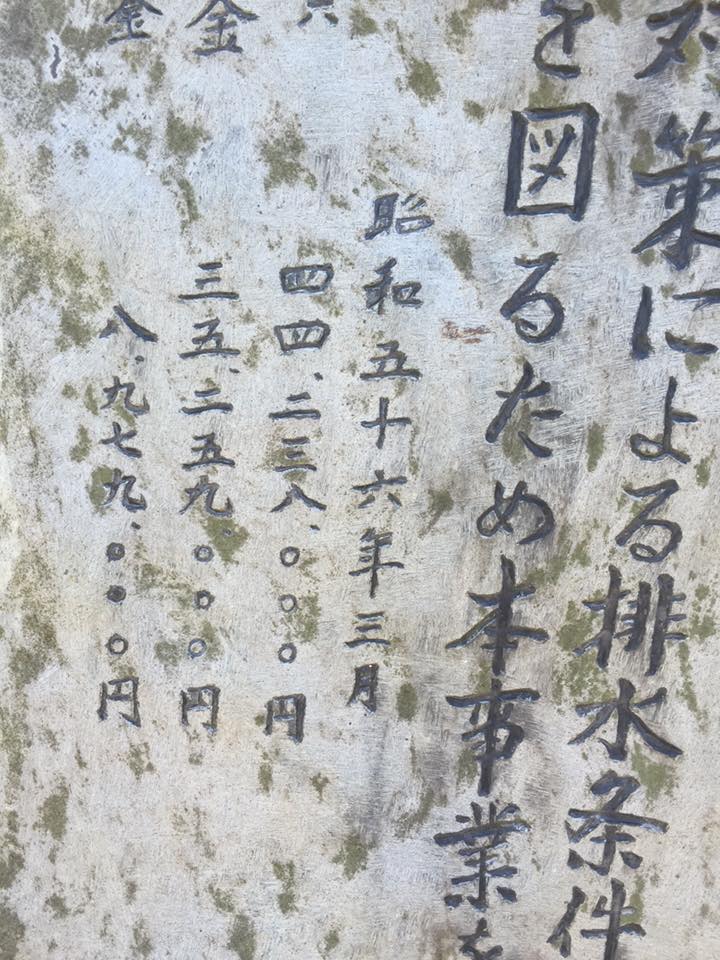 対策による排水条件
を図るため本事業を
昭和五十六年三月
四四、二三八、〇〇〇円
金 三五、二五九、〇〇〇円
金 八、九七九、〇〇〇円